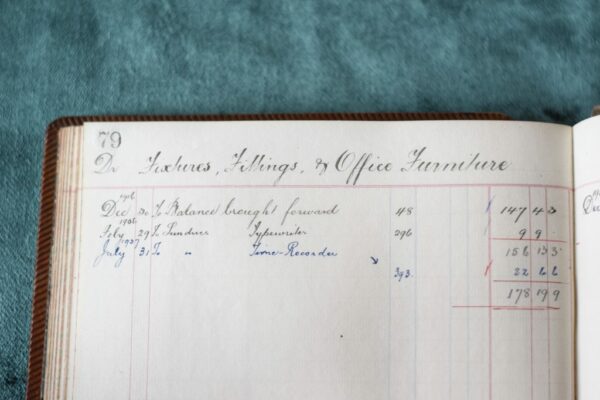 79
Dr Fixtures, Fittings, & Office Furniture
Dec 30 To Balance brought forward 48 147 4 3
1906
July 29 To Sundries Typewriter 296 9 9
1907 156 13 3
July 31 To " Time-Recorder 393 22 6 6
178 19 9